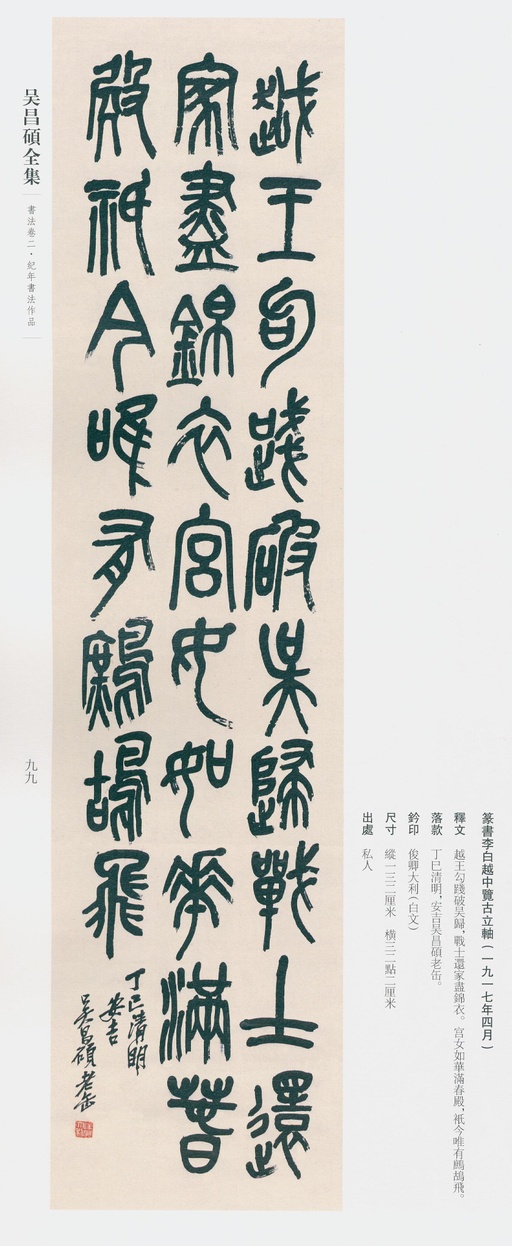 越王句踐破吴歸戰士還
家盡錦衣宮女如華滿春
殿祇今唯有鷓鴣飛
丁巳清明
安吉
吴昌碩老缶
篆書李白越中覽古立軸(一九一七年四月)
釋文 越王勾踐破吴歸,戰士還家盡錦衣。宫女如華滿春殿,祇今唯有鷓鴣飛。
落款 丁巳清明,安吉吴昌碩老缶。
鈐印 俊卿大利(白文)
尺寸 縱一三二厘米 橫三二點二厘米
出處 私人
吴昌碩全集
書法卷二·紀年書法作品
九九